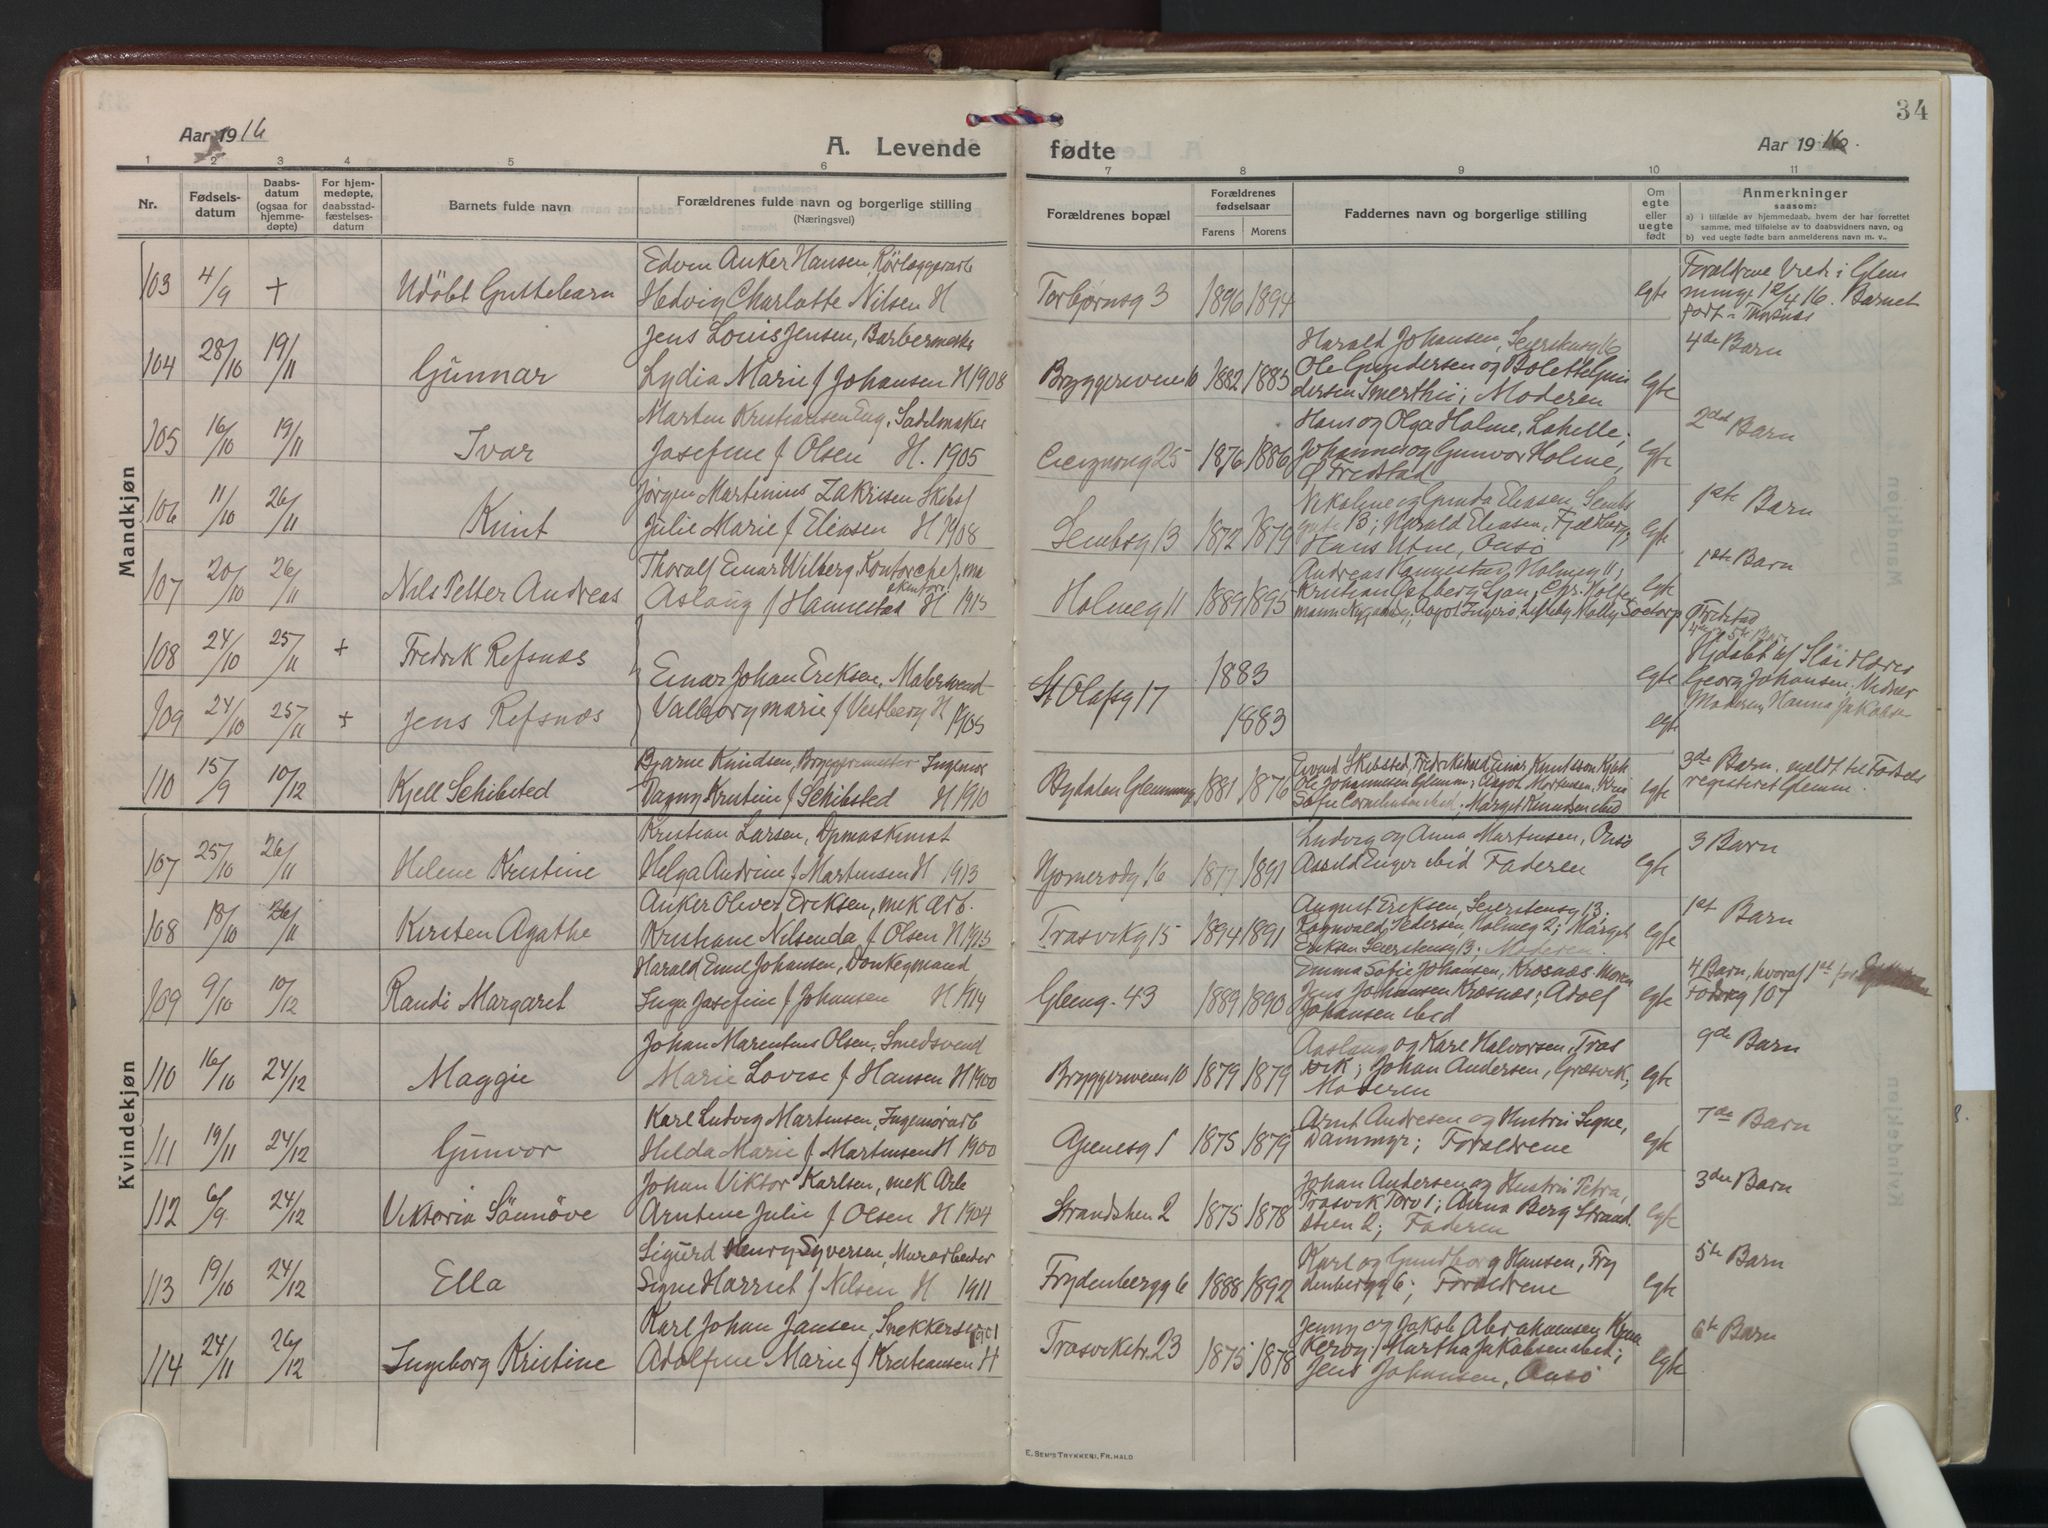 34
Aar 1916
A. Levende fødte
Aar 1916.
1 2 3 4 5 6 7 8 9 10 11
Nr.
Fødselsdatum
Daabsdatum (ogsaa for hjemmedøpte)
For hjemmedøpte, daabsstadfæstelsesdatum
Barnets fulde navn
Forældrenes fulde navn og borgerlige stilling
(Næringsvei)
Forældrenes bopæl
Forældrenes fødselsaar
Farens Morens
Faddernes navn og borgerlige stilling
Om egte eller uegte født
Anmerkninger
saasom:
a) i tilfælde av hjemmedaab, hvem der har forrettet
samme, med tilføielse av to daabsvidners navn, og
b) ved uegte fødte barn anmelderens navn m. v..
Mandkjøn
103 4/9 + Udöbt Guttebarn
Edvin Anker Hansen, Rörlæggerarb
Hedvig Charlotte Nilsen H
Torbjørnsg 3 1896 1894 egte
Forældrene viet i Glem
minge 12/4 16. Barnet
født i Thorsnæs
104 28/10 19/11 Gunnar
Jens Louis Jensen, Barbermester
Lydia Marie f Johansen H 1908
Bryggeriveien 10 1882 1883
Harald Johansen, Seiersburg 6
Ole Gundersen og Bolette Gun
dersen Smerthu; Moderen
egte
4de Barn
105 16/10 19/11 Ivar
Marten Kristiansen Eng, Sadelmaker
Josefine f Olsen H. 1905
25 1876 1886
Hans og Olga Holme, Lahelle;
Johannes og Gunvor Holme,
Ø Fredstad
egte
2det Barn
106 11/10 26/11 Knut
Jørgen Martinius Zakrisen Skibsf
Julie Marie f Eliasen H 1908
Lembsg 13 1872 1879
Nikoline og Gunda Eliasen, Lembs
gate 13; Harald Eliasen, Fjeldberg,
Hans Utne, Onsö
egte
1ste Barn
107 20/10 26/11 Nils Petter Andreas
Thoralf Einar Wilberg, Kontorchef, ma
skinfor.
Aslaug f Hannestad H 1915
Holmeg 11 1889 1895
Andreas Hannestad, Holmeg 11;
Kristian Ostberg Ljan; Chr. Holte
mann Nygaardsg; Aagot Ingerö, Lisleby Molly Soetorp Ø Fredstad
egte
1ste Barn
108 24/10 25/11 + Fredrik Refsnæs
109 24/10 25/11 + Jens Refsnæs
Einar Johan Eriksen, Malersvend
Valborg marie f Vestberg H 1905
St Olafsg 17 1883 1883
egte
egte
4de og 5te Barn
Hjdøbt af Sløidlærer
Georg Johansen. Vidner
Moderen, Hanna Jakobsen
110 15/9 10/12 Kjell Schibsted
Bjarne Knudsen, Bryggerimester Ingeniør
Dagny Kristine f Schibsted H 1910
Bydalen Glemminge 1881 1876
Eivind Skibsted, Fredrikshald Einar Knutsson
Ole Johannesen Glemm; Aagot Mortensen,
Sofie ibid; Marget Knudsen ibid
egte
3de Barn. meldt til Fødsels
registeret Glemm.
Kvindekjøn
107 25/10 26/11 Helene Kristine
Kristian Larsen, Dpmaskinist
Helga Andrine f Martinsen H 1913
Hjomerodg 16 1877 1891
Ludvig og Anna Martinsen, Onsö
Assild Enger ibid Faderen
egte
3 Barn
108 18/10 26/11 Kirsten Agathe
Anker Oliver Eriksen, mek arb.
Kristiane Nilsenda f Olsen H 1915
Trosvikg 15 1894 1891
August Eriksen, Seierstensg 13.
Ragnvald Pedersen, Holmeg 2; Marget
Eriksen Seierstensg 13. Moderen
egte
1st Barn
109 9/10 10/12 Randi Margaret
Harald Emil Johansen, Donkeymand
Inga Josefine f Johansen H 1914
Gleng. 43 1889 1890
Emma Sofie Johansen, Krosnæs Moren
Jens Johansen Krosnæs; Adolf
Johansen ibid
egte
4 Barn, hvoraf 1st for
Fødselg 107
110 16/10 24/12 Maggie
Johan Marentius Olsen, Smedsvend
Marie Lovise f Hansen H 1900
Bryggeriveien 10 1879 1879
Aaslaug og Karl Halvorsen, Tros
vik; Johan Andersen, Græsvik;
Moderen
egte
9de Barn
111 19/11 24/12 Gunvor
Karl Ludvig Martinsen, Ingeniørarb
Hilda Marie f Martinsen H 1900
Glenesg 1 1875 1879
Arnt Andresen og Hustru Signe,
Dammyr; Forældrene
egte
7de Barn
112 6/9 24/12 Viktoria Sönnöve
Johan Viktor Karlsen, mek Arb
Arntine Julie f Olsen H 1904
Strandstien 2 1875 1878
Johan Andersen og Hustru Petra,
Trosvik Torv 1; Anna Berg Strand
stien 2; Faderen
egte
3die Barn
113 19/10 24/12 Ella
Sigurd Henry Syversen, Murarbeider
Signe Harriet f Nilsen H 1911
Frydenbergg 6 1888 1892
Karl og Gundborg Hansen, Fry
denbergg 6; Forældrene
egte
5te Barn
114 24/11 26/12 Ingeborg Kristine
Karl Johan Jansen, Snekkersv
Adolfine Marie f Kristiansen H 1901
Trosvikstr. 23 1875 1878
Jenny og Jakob Abrahamsen
Martha Jakobsen ibid;
Jens Johansen, Onsö
egte
6te Barn
E. SEM'S TRYKKERI, FR.HALD